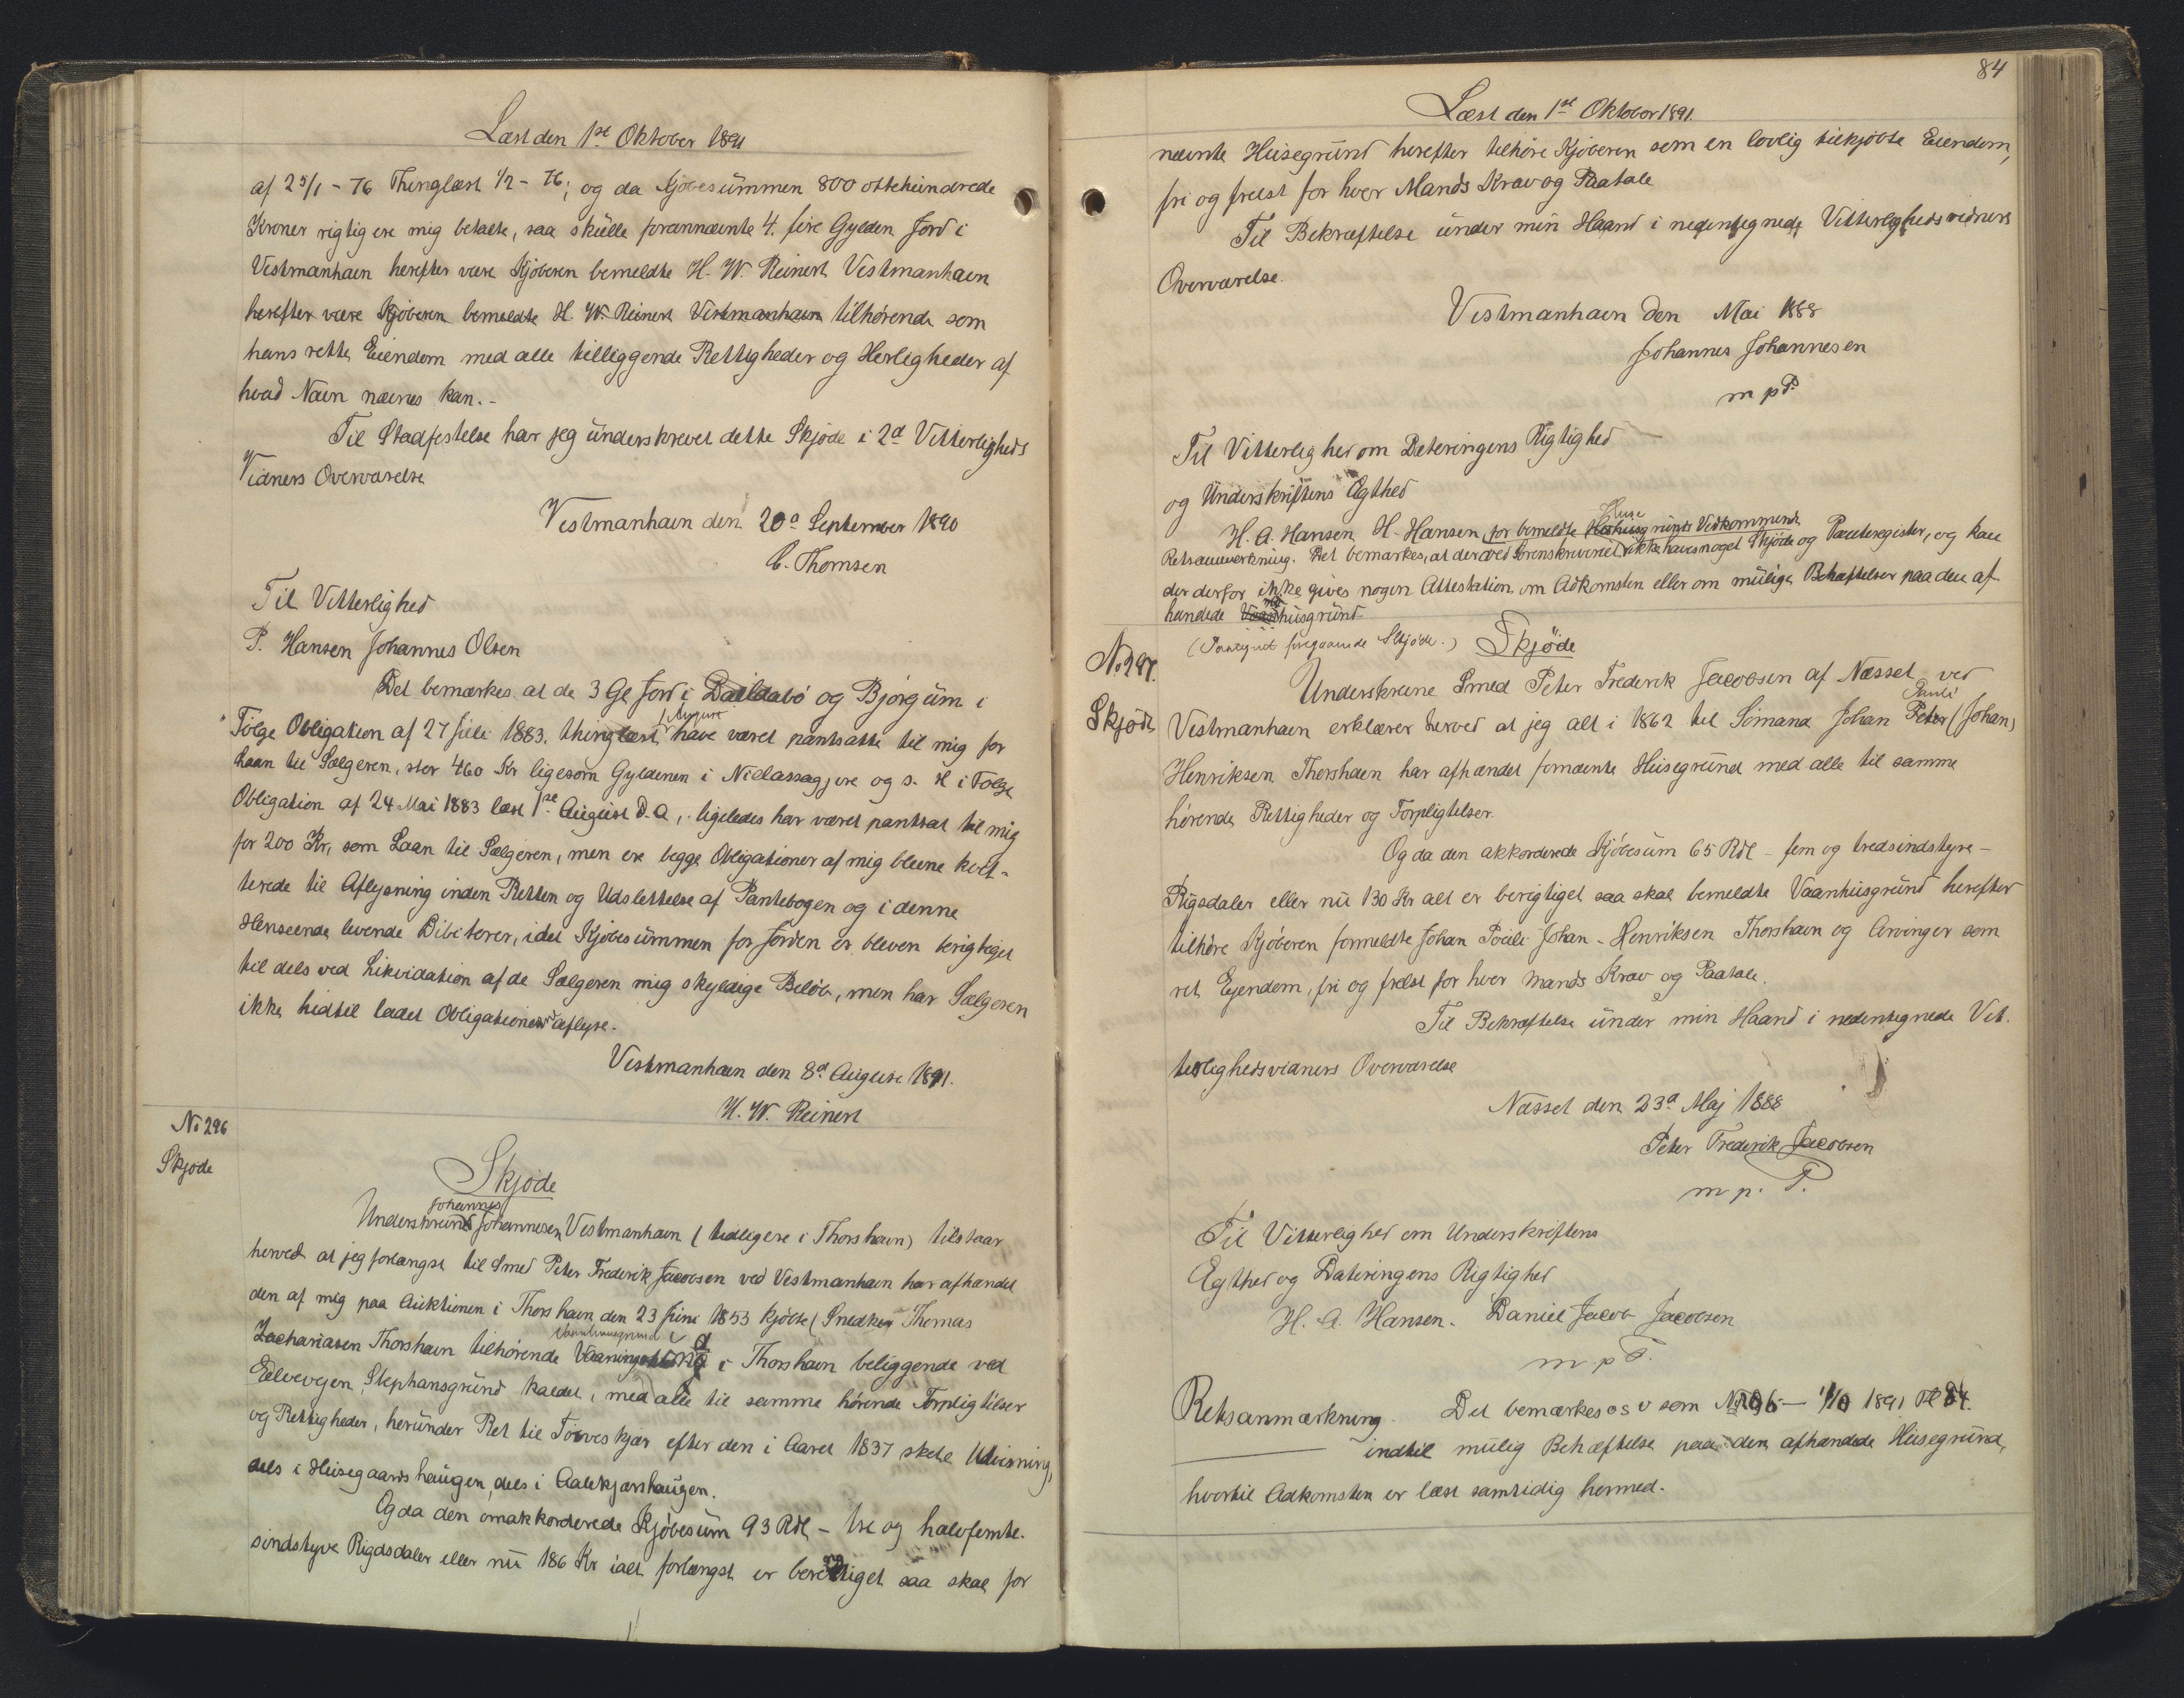 Læst den 1ste Oktober 1891
af 25/1 - 76 Thinglæst 1/2 - 76; og da Kjøbesummen 800 ottehundrede
Kroner rigtig ere mig betalte, saa skulle forannævnte 4. fire Gylden Jord i
Vestmanhavn herefter være Kjøberen bemeldte H. W. Reinert Vestmanhavn
herefter være Kjøberen bemeldte H. W. Reinert Vestmanhavn tilhørende som
hans rette Eiendom med alle tilliggende Rettigheder og Herligheder af
hvad Navn nævnes kan. -
Til Stadfestelse har jeg underskrevet dette Skjøde i 2d Vitterligheds
Vidners Overværelse
Vestmanhavn den 20d September 1890
C. Thomsen
Til Vitterlighed
P. Hansen Johannes Olsen
Det bemærkes at de 3 Gl Jord i og Bjørgum i
Følge Obligation af 27 Juli 1883. thinglæst August have været pantsatte til mig for
Laan til Sælgeren, stor 460 Kr ligesom Gyldenen i Niclassagjere og s. H i Følge
Obligation af 24 Mai 1883 læst 1ste August D. A, ligeledes har været pantsat til mig
for 200 Kr, som Laan til Sælgeren, men ere begge Obligationer af mig blevne kvit-
terede til Aflysning inden Retten og Udslettelse af Pantebogen og i denne
Henseende levende Debitorer, idet Kjøbesummen for Jorden er bleven berigtiget
til dels ved Likvidation af de Sælgeren mig skyldige Beløb, men har Sælgeren
ikke hidtil ladet Obligationerne aflyse.
Vestmanhavn den 8d August 1891.
H. W. Reinert
No 296
Skjøde
Skjøde
Johannes
Underskrevne Johannesen Vestmanhavn (tidligere i Thorshavn) tilstaar
herved at jeg forlængst til Smed Peter Frederik Jacobsen ved Vestmanhavn har afhændet
den af mig paa Auktionen i Thorshavn den 23 Juni 1853 kjøbte (Snedker Thomas
Vaanhuusgrund
Zachariasen Thorshavn tilhørende i Thorshavn beliggende ved
Eelvevejen, Stephansgrund kaldet, med alle til samme hørende Forpligtelser
og Rettigheder, herunder Ret til Tørveskjær efter den i Aaret 1837 skete Udvisning,
dels i Husegaardshaugen, dels i Aalekjærshaugen.
Og da den omakkorderede Kjøbesum 93 Rdl - tre og halvfemte-
sindstyve Rigdsdaler eller nu 186 Kr ialt forlængst er berigtiget saa skal for
84
Læst den 1ste Oktober 1891.
nævnte Husegrund herefter tilhøre Kjøberen som en lovlig tilkjøbte Eiendom,
fri og frelst for hver Mands Krav og Paatale
Til Bekræftelse under min Haand i nedentegnede Vitterlighedsvidners
Overværelse.
Vestmanhavn den Mai 1888
Johannes Johannesen
m p P.
Til Vitterlighed om Dateringens Rigtighed
og Underskriftens Ægthed
Huse
H. A. Hansen H. Hansen for bemeldte grunds Vedkommende
Retsanmærkning. Det bemærkes, at der ved Sorenskriveriet ikke haves noget Skjøde og Panteregister, og kan
der derfor ikke gives nogen Attestation om Adkomsten eller om mulige Behæftelser paa den af-
hændede husgrund
(Paategnet foregaaende Skjøde.) Skjøde
No 297.
Skjøde
Underskrevne Smed Peter Frederik Jacobsen af Næsset ved
Pauli
Vestmanhavn erklærer herved at jeg alt i 1862 til Sømand Johan Peter (Johan)
Henriksen Thorshavn har afhændet fornævnte Husegrund med alle til samme
hørende Rettigheder og Forpligtelser.
Og da den akkorderede Kjøbesum 65 Rdl - fem og tredsindstyve -
Rigsdaler eller nu 130 Kr alt er berigtiget saa skal bemeldte Vaanhusgrund herefter
tilhøre Kjøberen formeldte Johan Pouli Johan - Henriksen Thorshavn og Arvinger som
ret Ejendom, fri og frelst for hver mands Krav og Paatale.
Til Bekræftelse under min Haand i nedentegnede Vit.
terlighedsvidners Overværelse
Næsset den 23d Maj 1888
Peter Frederik Jacobsen
m p. P.
Til Vitterlighed om Underskriftens
Egthed og Dateringens Rigtighed
H. A. Hansen. Daniel Jacob Jacobsen
m p P.
Retsanmærkning. Det bemærkes o s v som No 296 - 1/10 1891 Fl 84.
indtil mulig Behæftelse paa den afhændede Husegrund,
hvortil Adkomsten er læst samtidig hermed.